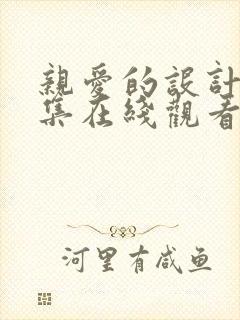 親愛的設計
集在綫觀看
河里有咸鱼